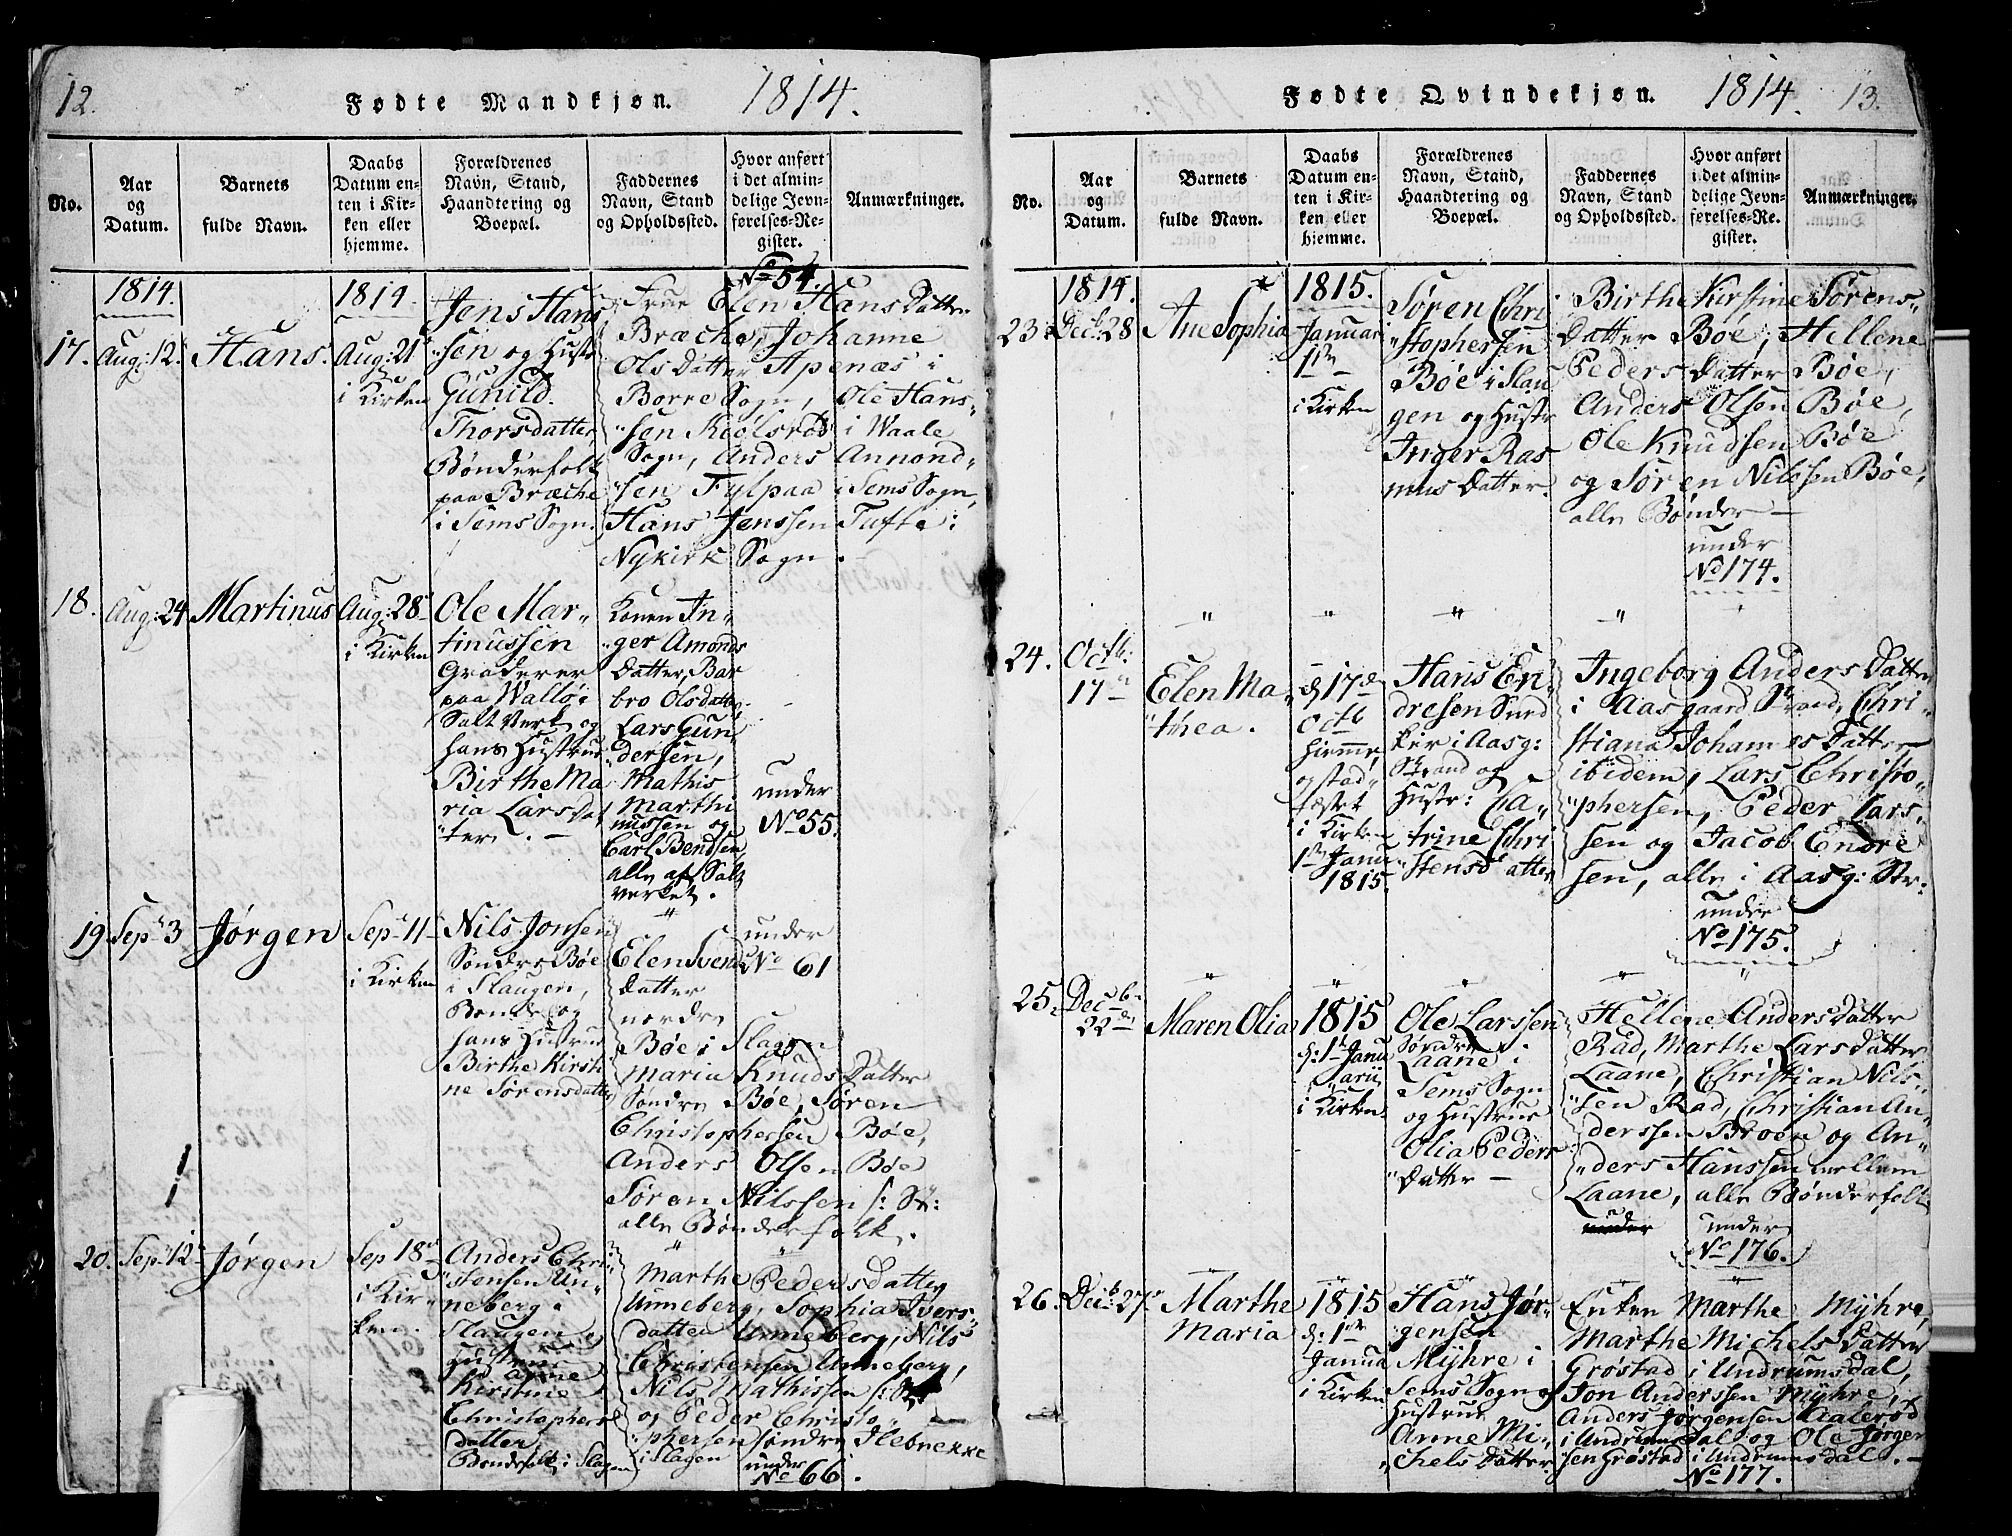 12.
Fødte Mandkjøn.
1814.
No.
Aar
og
Datum.
Barnets
fulde Navn.
Daabs
Datum en-
ten i Kir-
ken eller
hjemme.
Forældrenes
Navn, Stand,
Haandtering og
Boepæl.
Faddernes
Navn, Stand
og Opholdssted.
Hvor anført
i det almin-
delige Jevn-
førelses-Re-
gister.
Anmærkninger.
17.
1814.
Aug: 12.
Hans.
1814.
Aug: 21
i Kirken
Jens Hans
"sen og Hustr
Gunild.
Thorsdatter,
Bønderfolk
paa Bræche
i Sems Sogn.
No 54.
Frue Elen Hans Datter
Bræche, Johanne
Ols Datter Apenæs i
Borre Sogn, Ole Hans-
"sen Kiolsrød i Waale
Sogn, Anders Annond-
"sen Fylpaa i Sems Sogn,
Hans Jenssen Tufte i
Nykirk Sogn.
18.
Aug: 24
Martinus
Aug: 28
i Kirken
Ole Mar-
tinussen
Graderer
paa Walløe
Salt Verk og
hans Hustrue
Birthe Ma
ria Larsdat
"ter. —
Konen In-
"ger Amonds
Datter, Bar
bro Olsdatter
Lars Gun-
dersen,
Mathis
Marthi
nussen og
Carl Bendsen
alle af Salt
verket.
under
No 55.
19
Sept 3
Jørgen
Sept 11
i Kirken
Nils Jonsen
Søndre Bøe
i Slaugen,
Bonde og
hans Hustrue
Birthe Kirsti
ne Sørensdatter
Elen Svends
Datter
nordre
Bøe i Slagen
Maria Knuds Datter
Søndre Bøe, Søren
Christophersen Bøe,
Anders Olsen Bøe
Søren Nilssen S: St:
alle Bønderfolk.
under
No 61
20.
Sept 12
Jørgen
Sep 18
i Kir-
ken.
Anders Chri-
"stensen Un-
neberg i
Slaugen og
Hustrue
Anne
Kirstine
Christophers
datter
Bondefolk i Slagen
Marthe Peders datter
Unneberg, Sophia Ivers
datter Unneberg, Nils
Christensen Unneberg,
Nils Mathissen
og Peder Christo-
"phersen søndre Ilebrekke
i Slagen
under
No 66.
Fødte Qvindekjøn.
1814.
13.
No.
Aar
og
Datum.
Barnets
fulde Navn.
Daabs
Datum en-
ten i Kir-
ken eller
hjemme.
Forældrenes
Navn, Stand,
Haandtering og
Boepæl.
Faddernes
Navn, Stand
og Opholdssted.
Hvor anført
i det almin-
delige Jevn-
førelses-Re-
gister.
Anmærkninger.
23.
1814.
Decb 28
Ane Sophia
1815.
Januari
1ste
i Kirken
Søren Chri
"stophersen
Bøe i Slau
gen og Hustr
Inger Ras
mus Datter.
Birthe Kirstine Sørens-
Datter Bøe, Hellene
Peders Datter Bøe,
Anders Olsen Bøe,
Ole Knudssen Bøe
og Søren Nilssen Bøe,
alle Bønder —
under
No 174.
24.
Octb:
17
Elen Ma
"thea.
d 17de
Octb
hjemme,
og stad-
fæstet
i Kirken
1ste Janu
1815.
Hans En-
dresen Sned
ker i Aasg:
Strand og
Hustr: Ca-
trine Chri
stensdatter
Ingeborg Anders Datter
i Aasgaard Strand, Chri-
stiana Johannes Datter
ibidem, Lars Christo-
"phersen, Peder Lars-
sen og Jacob Endre
sen, alle i Aasg: Str:
under
No 175.
25.
Decb
22de
Maren Olia
1815
d: 1ste Janu
arii
i Kirken
Ole Larssen
Søndre
Laane i
Sems Sogn
og Hustrue
Olia Peders
"Datter —
Hellene Anders Datter
Rad, Marthe Lars Datter
Laane, Christian Nils-
sen Rad, Christian An-
derssen Broen og An-
"ders Hanssen mellem
Laane, alle Bønderfolk
under
under
No 176.
26.
Decb: 27
Marthe
Maria
1815
d: 1ste
Janua
i Kirken
Hans Jør-
gensen
Myhre i
Sems Sogn og
Hustrue
Anne Mi-
"chels Datter.
Enken Marthe Myhre,
Marthe Michels Datter
Grøstad i Undrumsdal,
Jon Anderssen Myhre,
Anders Jørgensen Aalerød
i Undrumsdal og Ole Jørgen
sen Grøstad i Undrumsdal. —
No 177.